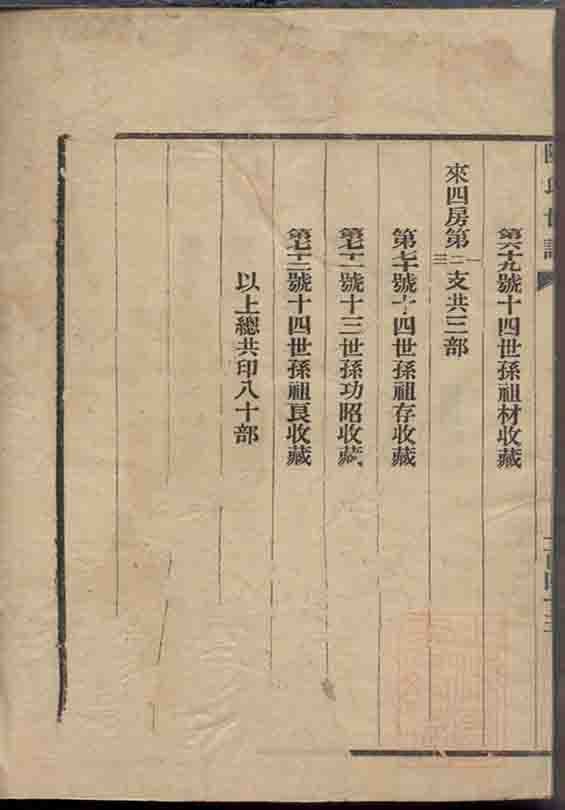 第六十九號十四世孫祖材收藏
來四房第一二三支共三部
第七十號十四世孫祖存收藏
第七十一號十三世孫功昭收藏
第七十二號十四世孫祖良收藏
以上總共印八十部